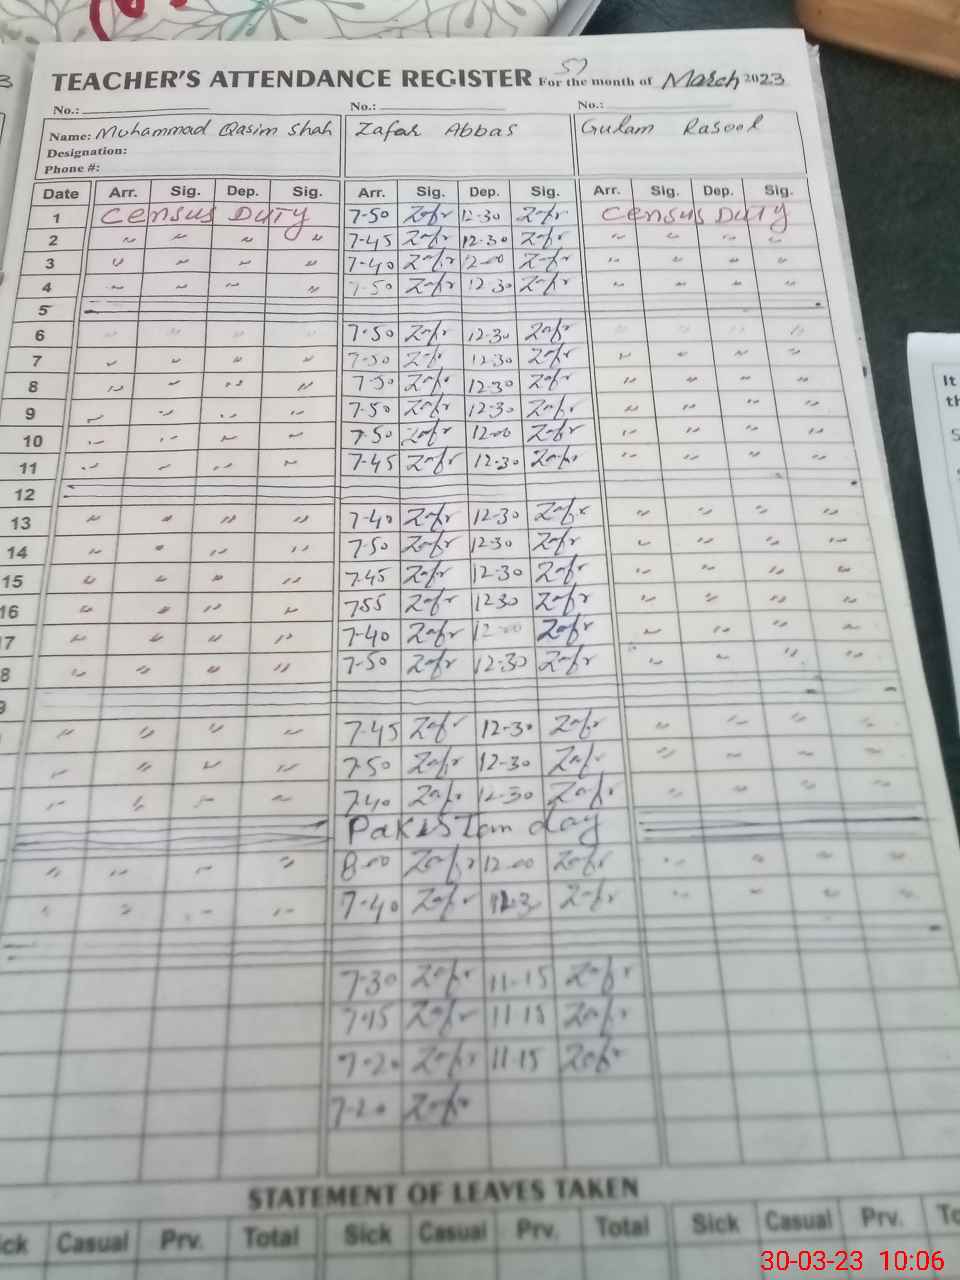 57
TEACHER'S ATTENDANCE REGISTER For the month of March 2023
No.: No.: No.:
Name: Muhammad Qasim Shah Zafar Abbas Gulam Rasool
Designation:
Phone #:
Date Arr. Sig. Dep. Sig. Arr. Sig. Dep. Sig. Arr. Sig. Dep. Sig.
1 Census DUTY 7-50 Zafr 12-30 Zafr Census DUTY
2 " " " " 7-45 Zafr 12-30 Zafr " " " "
3 " " " " 7-40 Zafr 12-00 Zafr " " " "
4 " " " " 7-50 Zafr 12-30 Zafr " " " "
5
6 " " " " 7-50 Zafr 12-30 Zafr " " " "
7 " " " " 7-50 Zafr 12-30 Zafr " " " "
8 " " " " 7-50 Zafr 12-30 Zafr " " " "
9 " " " " 7-50 Zafr 12-30 Zafr " " " "
10 " " " " 7-50 Zafr 12-00 Zafr " " " "
11 " " " " 7-45 Zafr 12-30 Zafr " " " "
12
13 " " " " 7-40 Zafr 12-30 Zafr " " " "
14 " " " " 7-50 Zafr 12-30 Zafr " " " "
15 " " " " 7-45 Zafr 12-30 Zafr " " " "
16 " " " " 7-55 Zafr 12-30 Zafr " " " "
7 " " " " 7-40 Zafr 12-00 Zafr " " " "
8 " " " " 7-50 Zafr 12-30 Zafr " " " "
9
" " " " 7-45 Zafr 12-30 Zafr " " " "
" " " " 7-50 Zafr 12-30 Zafr " " " "
" " " " 7-40 Zafr 12-30 Zafr " " " "
Pakistan day
" " " " 8-00 Zafr 12-00 Zafr " " " "
" " " " 7-40 Zafr Zafr " " " "
7-30 Zafr 11-15 Zafr
Zafr 11-15 Zafr
7-20 Zafr 11-15 Zafr
7-20 Zafr
STATEMENT OF LEAVES TAKEN
ick Casual Prv. Total Sick Casual Prv. Total Sick Casual Prv. To
It
th
30-03-23 10:06